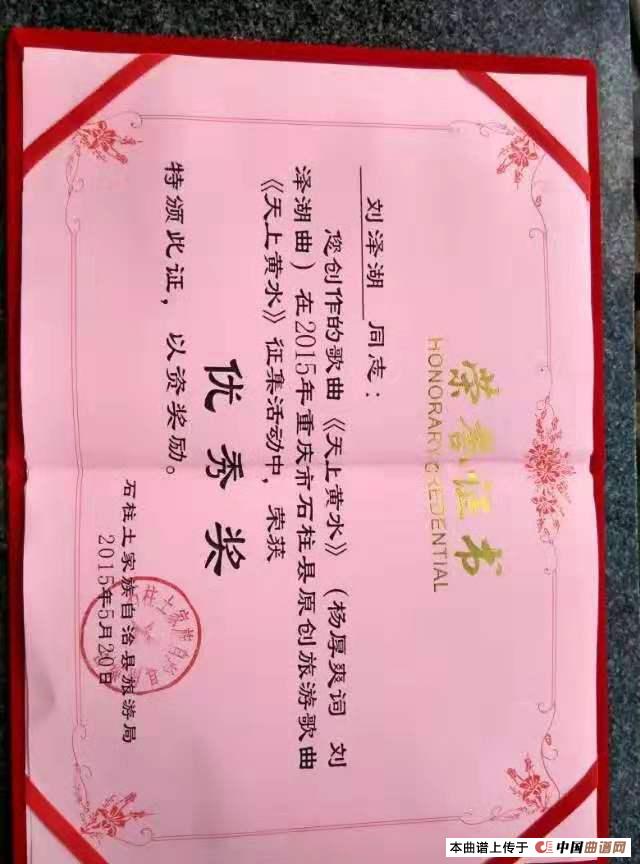 荣誉证书
HONORARY CREDENTIAL
刘泽湖 同志：
您创作的歌曲《天上黄水》（杨厚爽词 刘
泽湖曲）在2015年重庆市石柱县原创旅游歌曲
《天上黄水》征集活动中，荣获
优秀奖
特颁此证，以资奖励。
石柱土家族自治县旅游局
2015年5月20日
本曲谱上传于 中国曲谱网